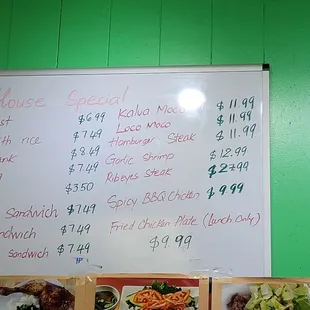 House Special
st $6.99
th rice $7.49
nk $8.49
$7.49
$3.50
Sandwich $7.49
ndwich $7.49
sandwich $7.49
Kalua Moco $11.99
Loco Moco $11.99
Hamburger Steak $11.99
Garlic Shrimp $12.99
Ribeyes Steak $27.99
Spicy BBQ Chicken $9.99
Fried Chicken Plate (Lunch Only)
$9.99